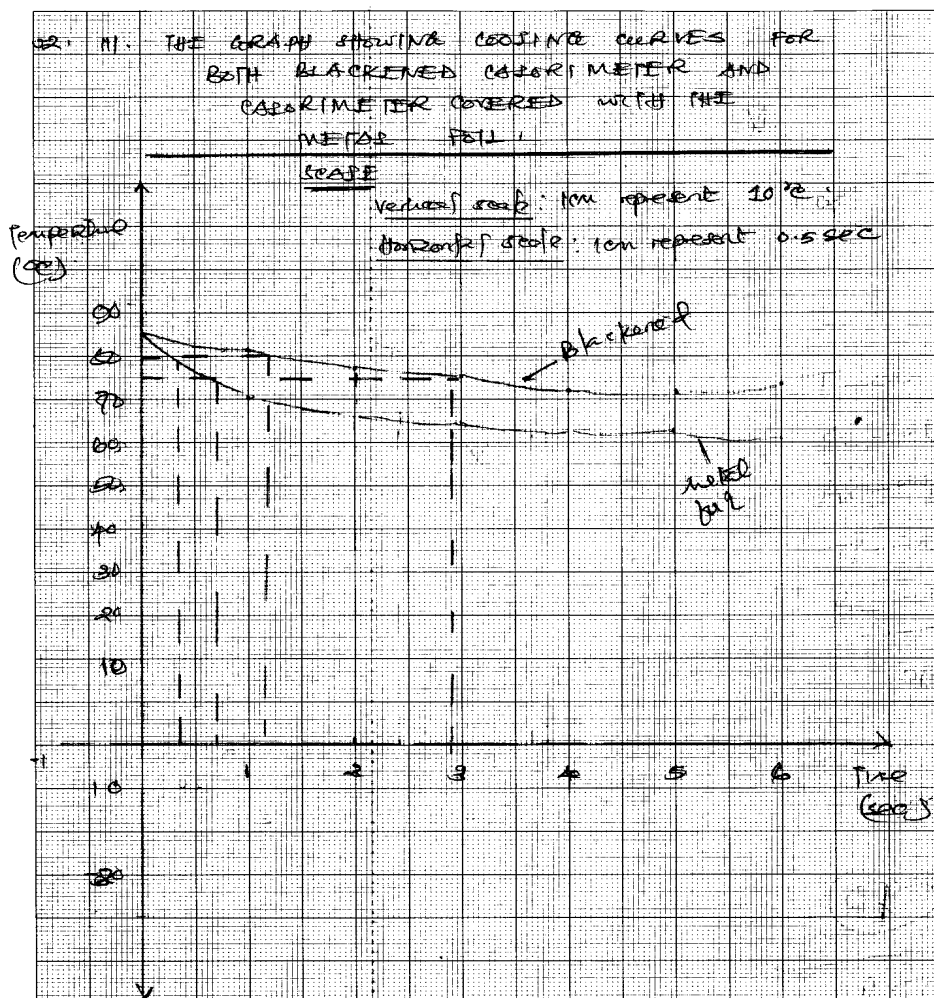 02. III. THE GRAPH SHOWING COOLING CURVES FOR
BOTH BLACKENED CALORIMETER AND
CALORIMETER COVERED WITH THE
METAL FOIL.
SCALE
Vertical scale: 1cm represent 10°C.
Horizontal scale: 1cm represent 0.5 sec
Temperature
(°C)
90
80
70
60
50
40
30
20
10
Blackened
metal
foil
-1
1
2
3
4
5
6
Time
(sec)
-10
-20